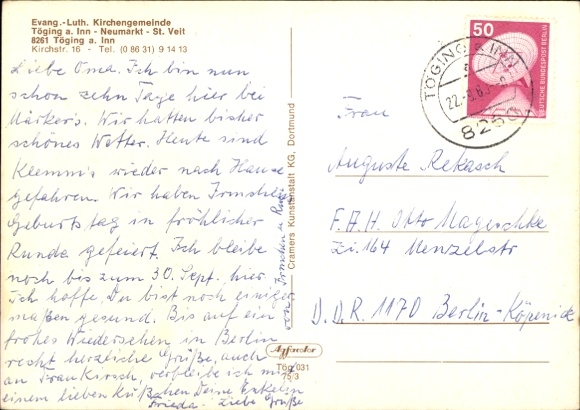 Evang.-Luth. Kirchengemeinde
Töging a. Inn - Neumarkt - St. Veit
8261 Töging a. Inn
Kirchstr. 16 - Tel. (0 86 31) 9 14 13
Liebe Oma. Ich bin nun
schon zehn Tage hier bei
Märker's. Wir hatten bisher
schönes Wetter. Heute sind
Klemm's wieder nach Hause
gefahren. Wir haben Irmchens
Geburtstag in fröhlicher
Runde gefeiert. Ich bleibe
noch bis zum 30. Sept. hier.
Ich hoffe, Du bist noch einiger
maßen gesund. Bis auf ein
frohes Wiedersehen in Berlin
recht herzliche Grüße, auch
an Frau Kirsch, verbleibe ich mit
einem lieben Küßchen Deine Enkelin
Frieda. Liebe Grüße
von Irmchen u.
Cramers Kunstanstalt KG, Dortmund
Afficolor
Tög 031
75/3
50
DEUTSCHE BUNDESPOST BERLIN
TÖGING a. INN
22.-9.
Frau
Auguste Rekasch
F.A.H. Otto Mageschke
Zi. 164 Menzelstr
D.D.R. 1170 Berlin-Köpenick